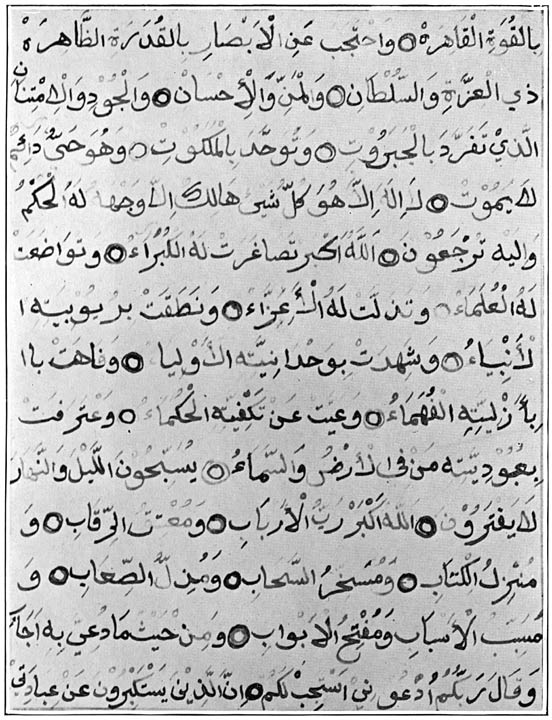 بِالقُوَةِ القَاهِرَةْ ۝ وَاحْتَجَبَ عَنِ الْاَبْصَارِ بِالقُدَرَةِ الظَّاهِرَةْ
ذِي الْعِزَّةِ وَالسُّلْطَانِ ۝ وَالْمَنِّ وَالْاِحْسَانْ ۝ وَالْجُودِ وَالْاِمْتِنَانِ
الَّذِيْ تَفَرَّدَ بِالْجَبَرُوْتِ ۝ وَتُوحَّدَ بِالْمَلَكُوتْ ۝ وَهُوَ حَيٌّ دَائِمٌ
لَا يَمُوْتْ ۝ لَا اِلٰهَ اِلَّا هُوَ كُلُّ شَيْءٍ هَالِكٌ اِلَّا وَجْهَهُ لَهُ الْحُكْمُ
وَاِلَيْهِ تُرْجَعُوْنَ ۝ اَللّٰهُ اَكْبَر تَصَاغَرَتْ لَهُ الْكُبَرَاءُ ۝ وَتَوَاضَعَتْ
لَهُ الْعُلَمَاءُ ۝ وَتَذَلَّلَتْ لَهُ الْاَعِزَّاءُ ۝ وَنَطَقَتْ بِرُبُوْبِيَّتِهِ ا
لْاَنْبِيَاءُ ۝ وَشَهِدَتْ بِوَحْدَانِيَّتِهِ الْاَوْلِيَاءُ ۝ وَفَاهَتْ بِاا
بِاَزَلِيَّتِهِ الْفُهَمَاءُ ۝ وَعَيَتْ عَنْ تَكْفِيَّتِهِ الْحُكَمَاءُ ۝ وَعْتَرَفَتْ
بِعُبُودِيَّتِهِ مَنْ فِي الْاَرْضِ وَالسَّمَاءُ ۝ يُسَبِّحُونَ اللَّيْلَ وَالنَّهَارَ
لَا يَفْتَرُوْنَ ۝ اَللّٰهُ اَكْبَرُ رَبُّ الْاَرْبَابِ ۝ وَمُعْتِقُ الرِّقَابِ ۝ وَ
مُنْزِلُ الْكِتَابِ ۝ وَمُسَخِّرُ السَّحَابِ ۝ وَمُذِلُّ الصِّعَابِ ۝ وَ
مُسَبِّبُ الْاَسْبَابِ وَمُفَتِّحُ الْاَبْوَابِ ۝ وَمِنْ حَيْثُ مَا دُعِيَ بِهِ اَجَابَ
وَقَالَ رَبُّكُمُ ادْعُوْنِيْ اَسْتَجِبْ لَكُمْ ۝ اِنَّ الَّذِيْنَ يَسْتَكْبِرُونَ عَنْ عِبَادَتِيْ